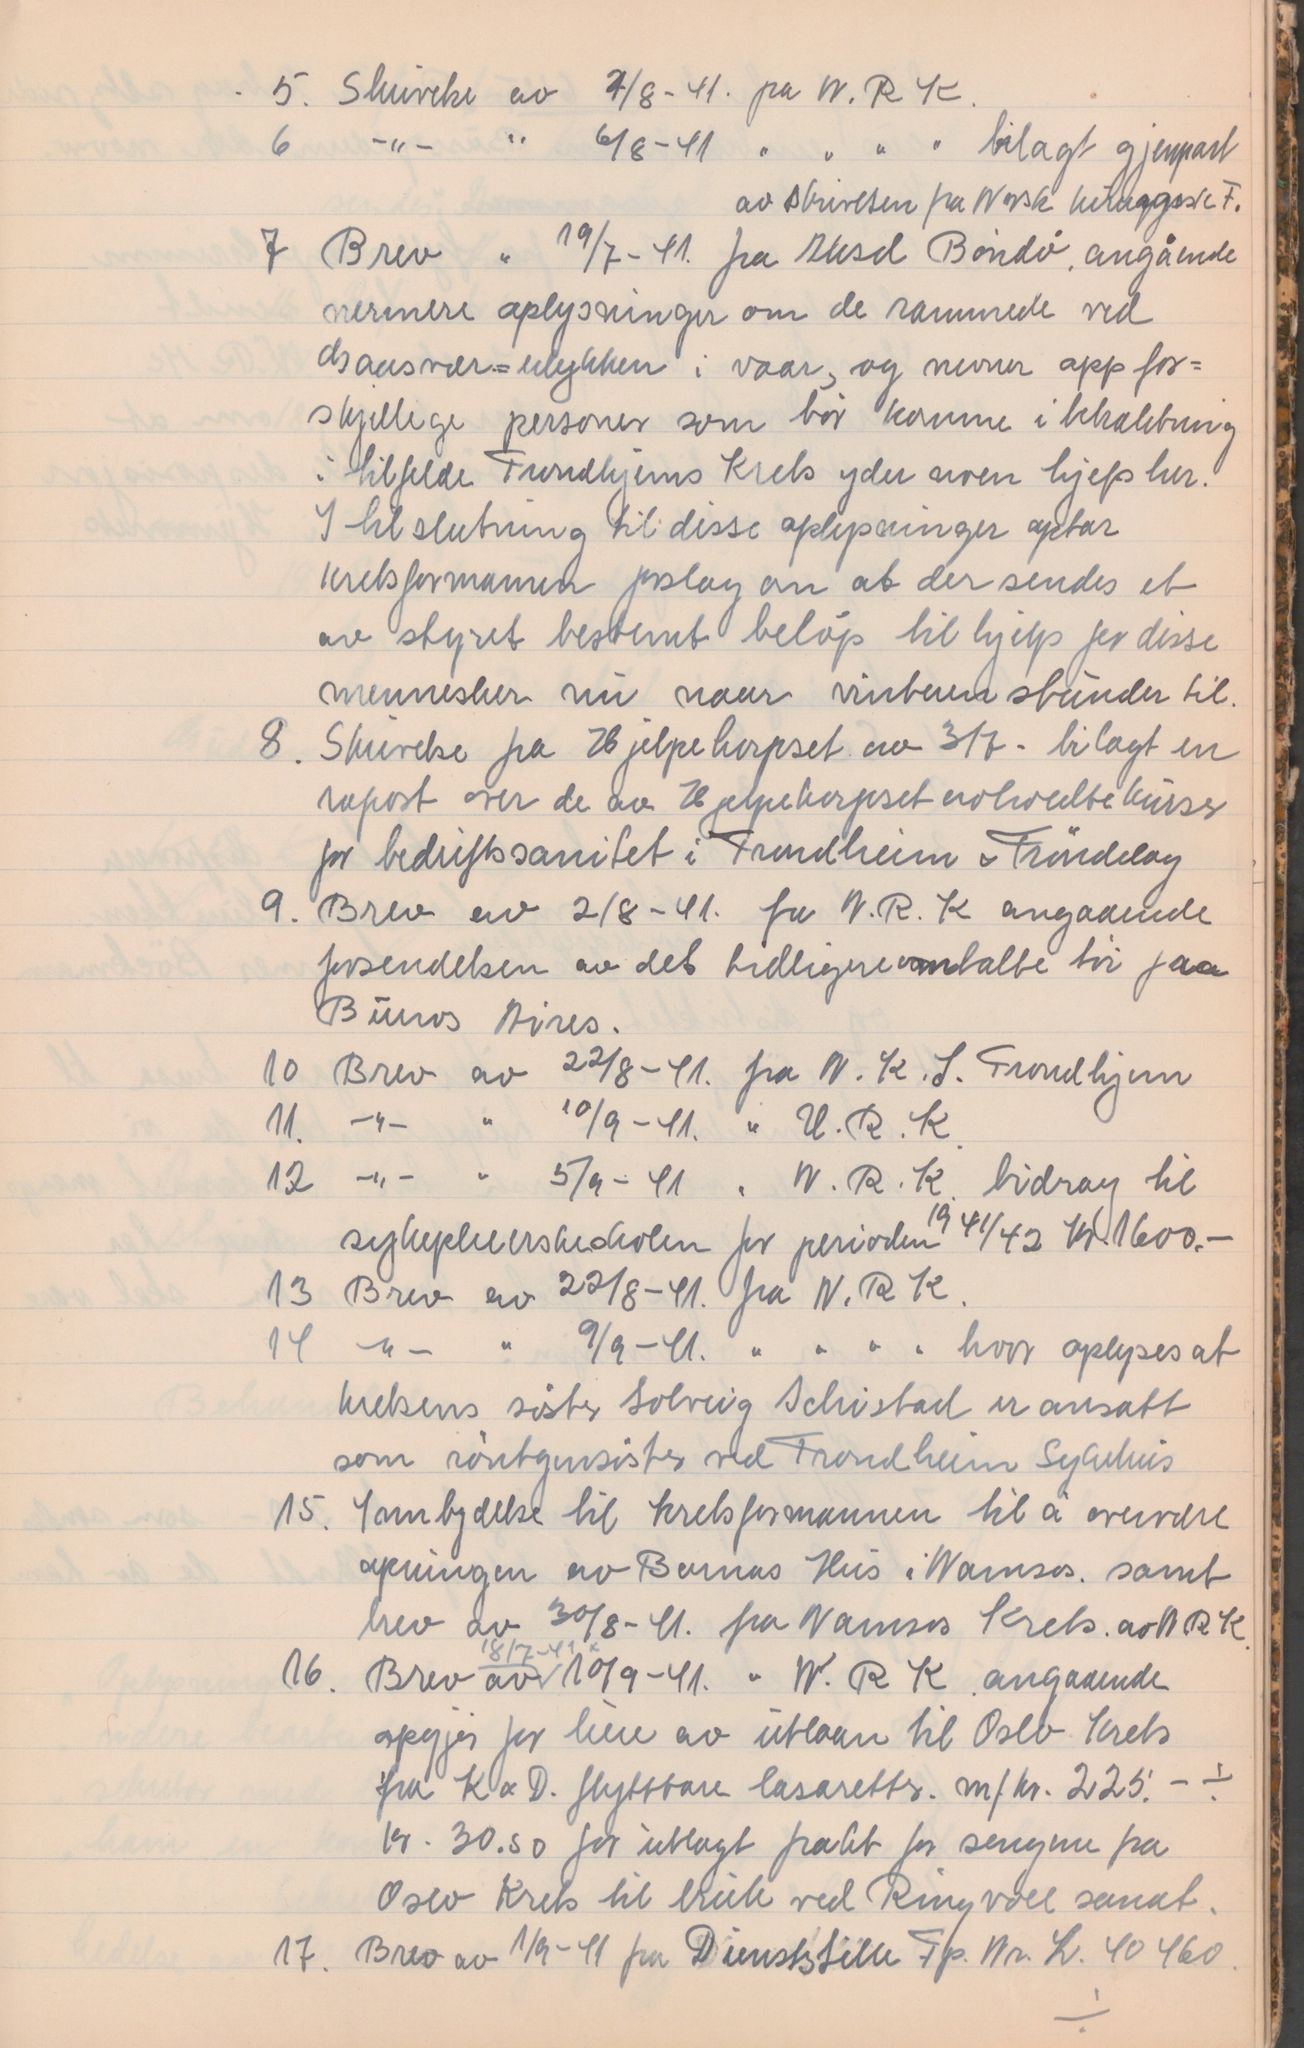 5. Skrivelse av 4/8-41. fra N.R.K.
6 -"- " 6/8-41 " " " " bilagt gjenpart
av skrivelsen fra Norsk
7 Brev " 19/7-41. fra Aksel Bóndó, angående
nermere oplysninger om de rammede ved
ulykken i vaar, og nevner opp for=
skjellege personer som bör komme i betraktning
i tilfelde Trondhjems Krets yder noen hjelp her.
I tilslutning til disse oplysninger optar
kretsformannen forslag om at der sendes et
av styret bestemt belöp til hjelp for disse
mennesker nu naar vinteren stunder til.
8. Skrivelse fra Hjelpekorpset av 3/7- bilagt en
raport over de av Hjelpekorpset avholdte kurser
for bedriftssanitet i Trondheim & Tröndelag
9. Brev av 2/8-41. fra N.R.K angaaende
forsendelsen av det tidligere omtalte töi fraa
Bunos Aires.
10 Brev av 22/8-41. fra N.K.S. Trondhjem
11. -"- " 10/9-41. " U.R.K.
12 -"- " 5/9-41 " N.R.K. bidrag til
sykepleierskeskolen for perioden 1941/42 Kr. 1600.-
13 Brev av 22/8-41. fra N.R.K.
14 -"- " 9/9-41. " " " " hvor oplyses at
kretsens söster Solveig Schistad er ansatt
som röntgensöster ved Trondheim Sykehus
15. Innbydelse til kretsformannen til å overvære
åpningen av Barnas Hus i Namsos. samt
brev av 30/8-41. fra Namsos Krets. av N R K.
18/7-41 "
16. Brev av 10/9-41. " N. R K. angaaende
opgjör for leie av utlaan til Oslo Krets
fra K & D. flyttbare lasaretts. m/kr. 225.- ÷
kr. 30.50 for utlagt frakt for sengene fra
Oslo Krets til bruk ved Ringvoll sanat.
17. Brev av 1/9-41 fra Dienststelle Fp. Nr. L. 40460.
÷